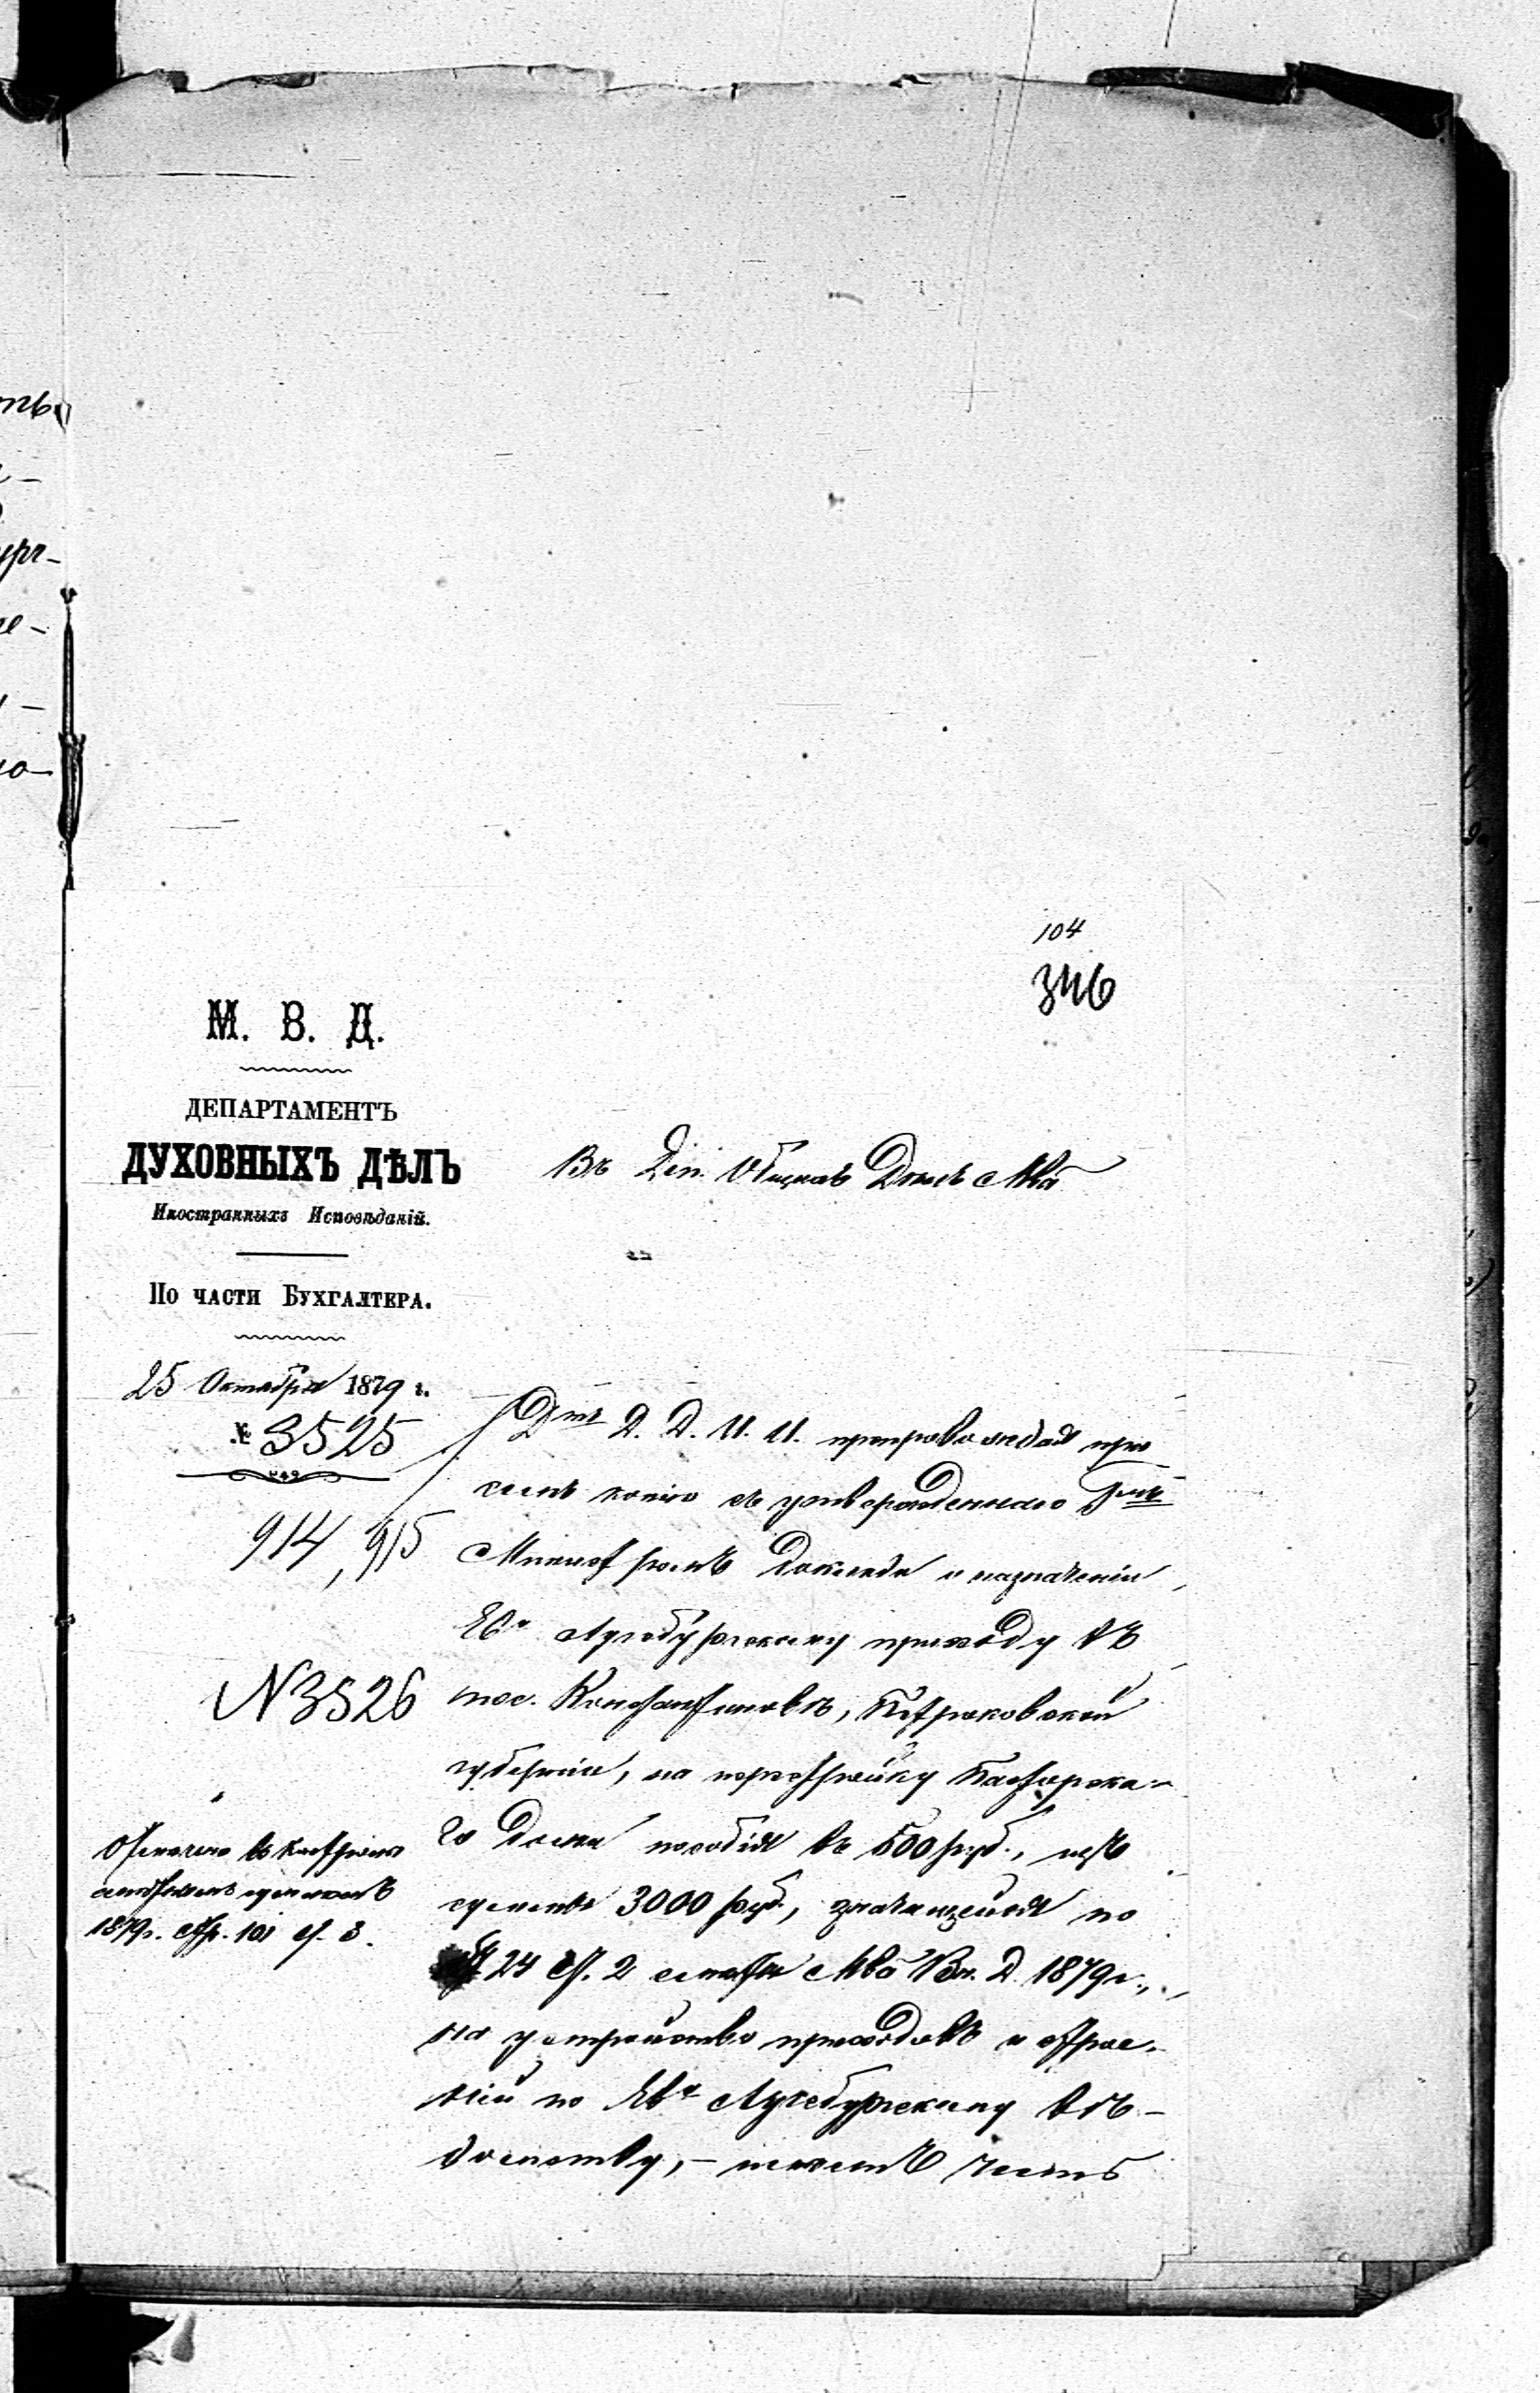 104
346
М. В. Д.
ДЕПАРТАМЕНТЪ
ДУХОВНЫХЪ ДѢЛЪ
Иностранныхъ Исповѣданій.
По части Бухгалтера.
25 Октября 1879 г.
№ 3525
914, 915
N 3526
Отмечено въ
1879 г. стр. 101 ст. 3.
Въ Деп. Общихъ Дѣлъ Мва
Дтъ Д. Д. И. И. препровождая при
семъ копію съ утвержденнаго Гмъ
Министромъ доклада о назначеніи
Ев. Аугсбургскому приходу въ
пос. Константиновѣ, Петроковской
губерніи, на перестройку Пасторска-
го дома пособія въ 500 руб., изъ
суммы 3000 руб., значащейся по
§ 24 ст. 2 смѣты Мва Вн. Д. 1879 г.,
на устройство приходовъ и строе-
ній по Ев. Аугсбургскому вѣ-
домству, – имѣетъ честь